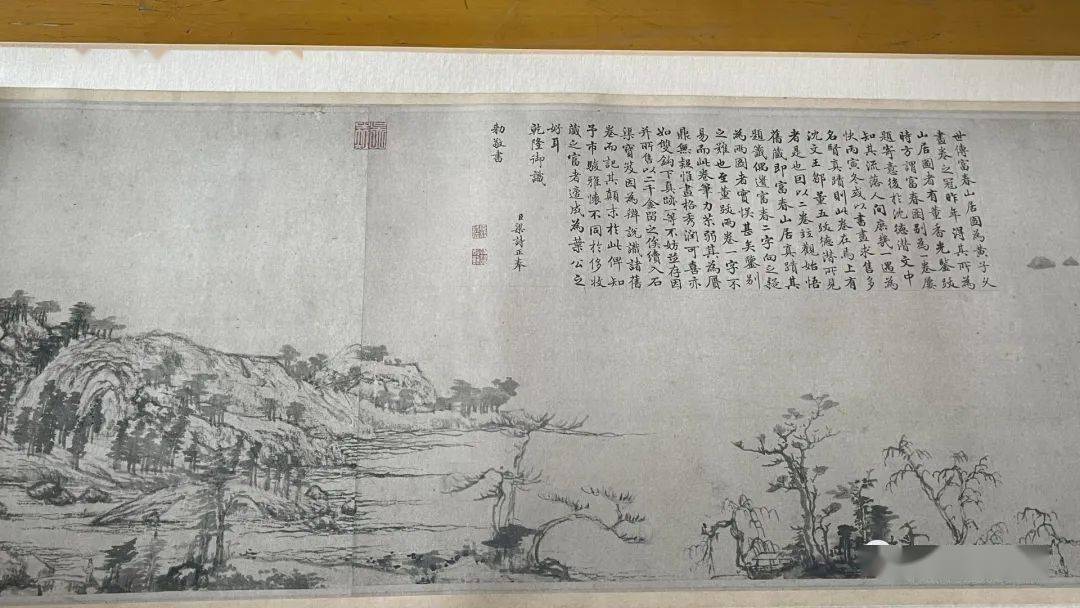 世傳富春山居圖為黃子久
畫卷之冠昨年得其所為
山居圖者有董香光鑒跋
時方謂富春圖別為一卷屢
題寄意後於沈德潛文中
知其流落人間庶幾一遇為
快丙寅冬或以書畫求售多
名賢真蹟則此卷在焉上有
沈文王鄒董五跋德潛所見
者是也因以二卷竝觀始悟
舊藏即富春山居真蹟其
題籤偶遺富春二字向之疑
為兩圖者實悞甚矣鑒別
之難也至董跋兩卷一字不
易而此卷筆力苶弱其為贗
鼎無疑惟畫格秀潤可喜亦
如雙鉤下真蹟一等不妨並存因
并所售以二千金留之俟續入石
渠寶笈因為辨說識諸舊
卷而記其顛末於此俾知
予市駿雅懷不同於侈收
藏之富者適成為葉公之
好耳
乾隆御識
臣梁詩正奉
勅敬書